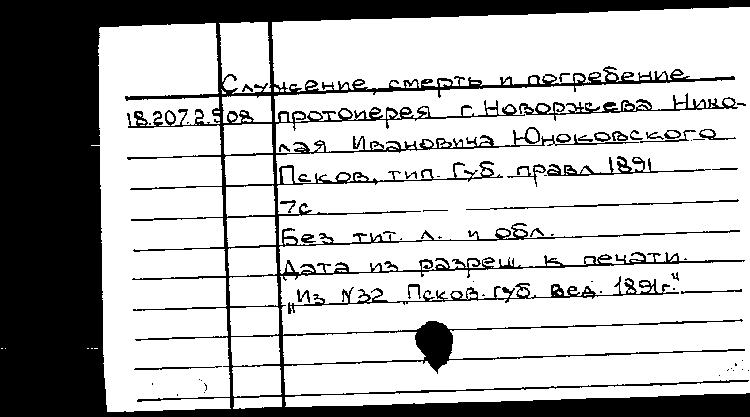 Служение, смерть и погребение
18.207.2.508 протоиерея г. Новоржева Нико-
лая Ивановича Юноковского
Псков, тип. Губ. правл 1891
7с.
Без тит. л. и обл.
Дата из разреш. к печати.
„Из №32 „Псков. губ. вед. 1891г."